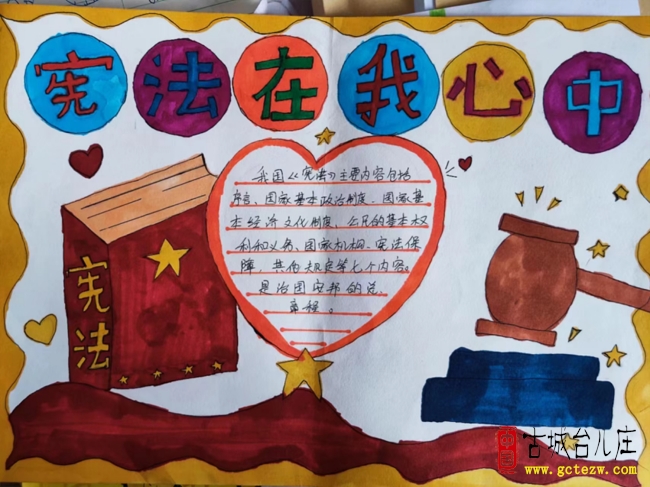 宪法在我心中
我国《宪法》主要内容包括
序言、国家基本政治制度、国家基
本经济文化制度、公民的基本权
利和义务、国家机构、宪法保
障，其他规定等七个内容。
是治国安邦的总
章程。
宪法
古城台儿庄
www.gctezw.com